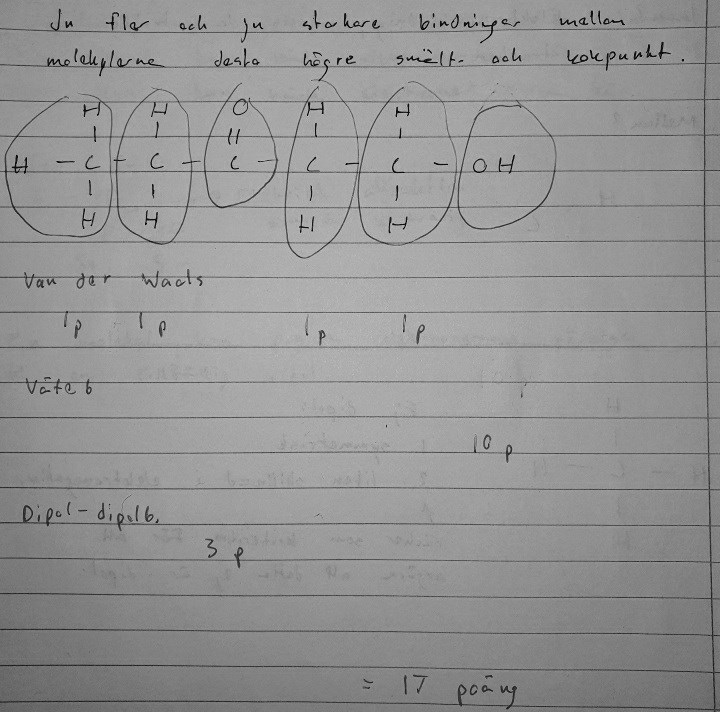 Ju fler och ju starkare bindningar mellan
molekylerna desto högre smält- och kokpunkt.
H H O H H
| | || | |
H - C - C - C - C - C - OH
| | | |
H H H H
Van der Waals
1p 1p 1p 1p
Väteb
10p
Dipol-dipolb.
3p
= 17 poäng